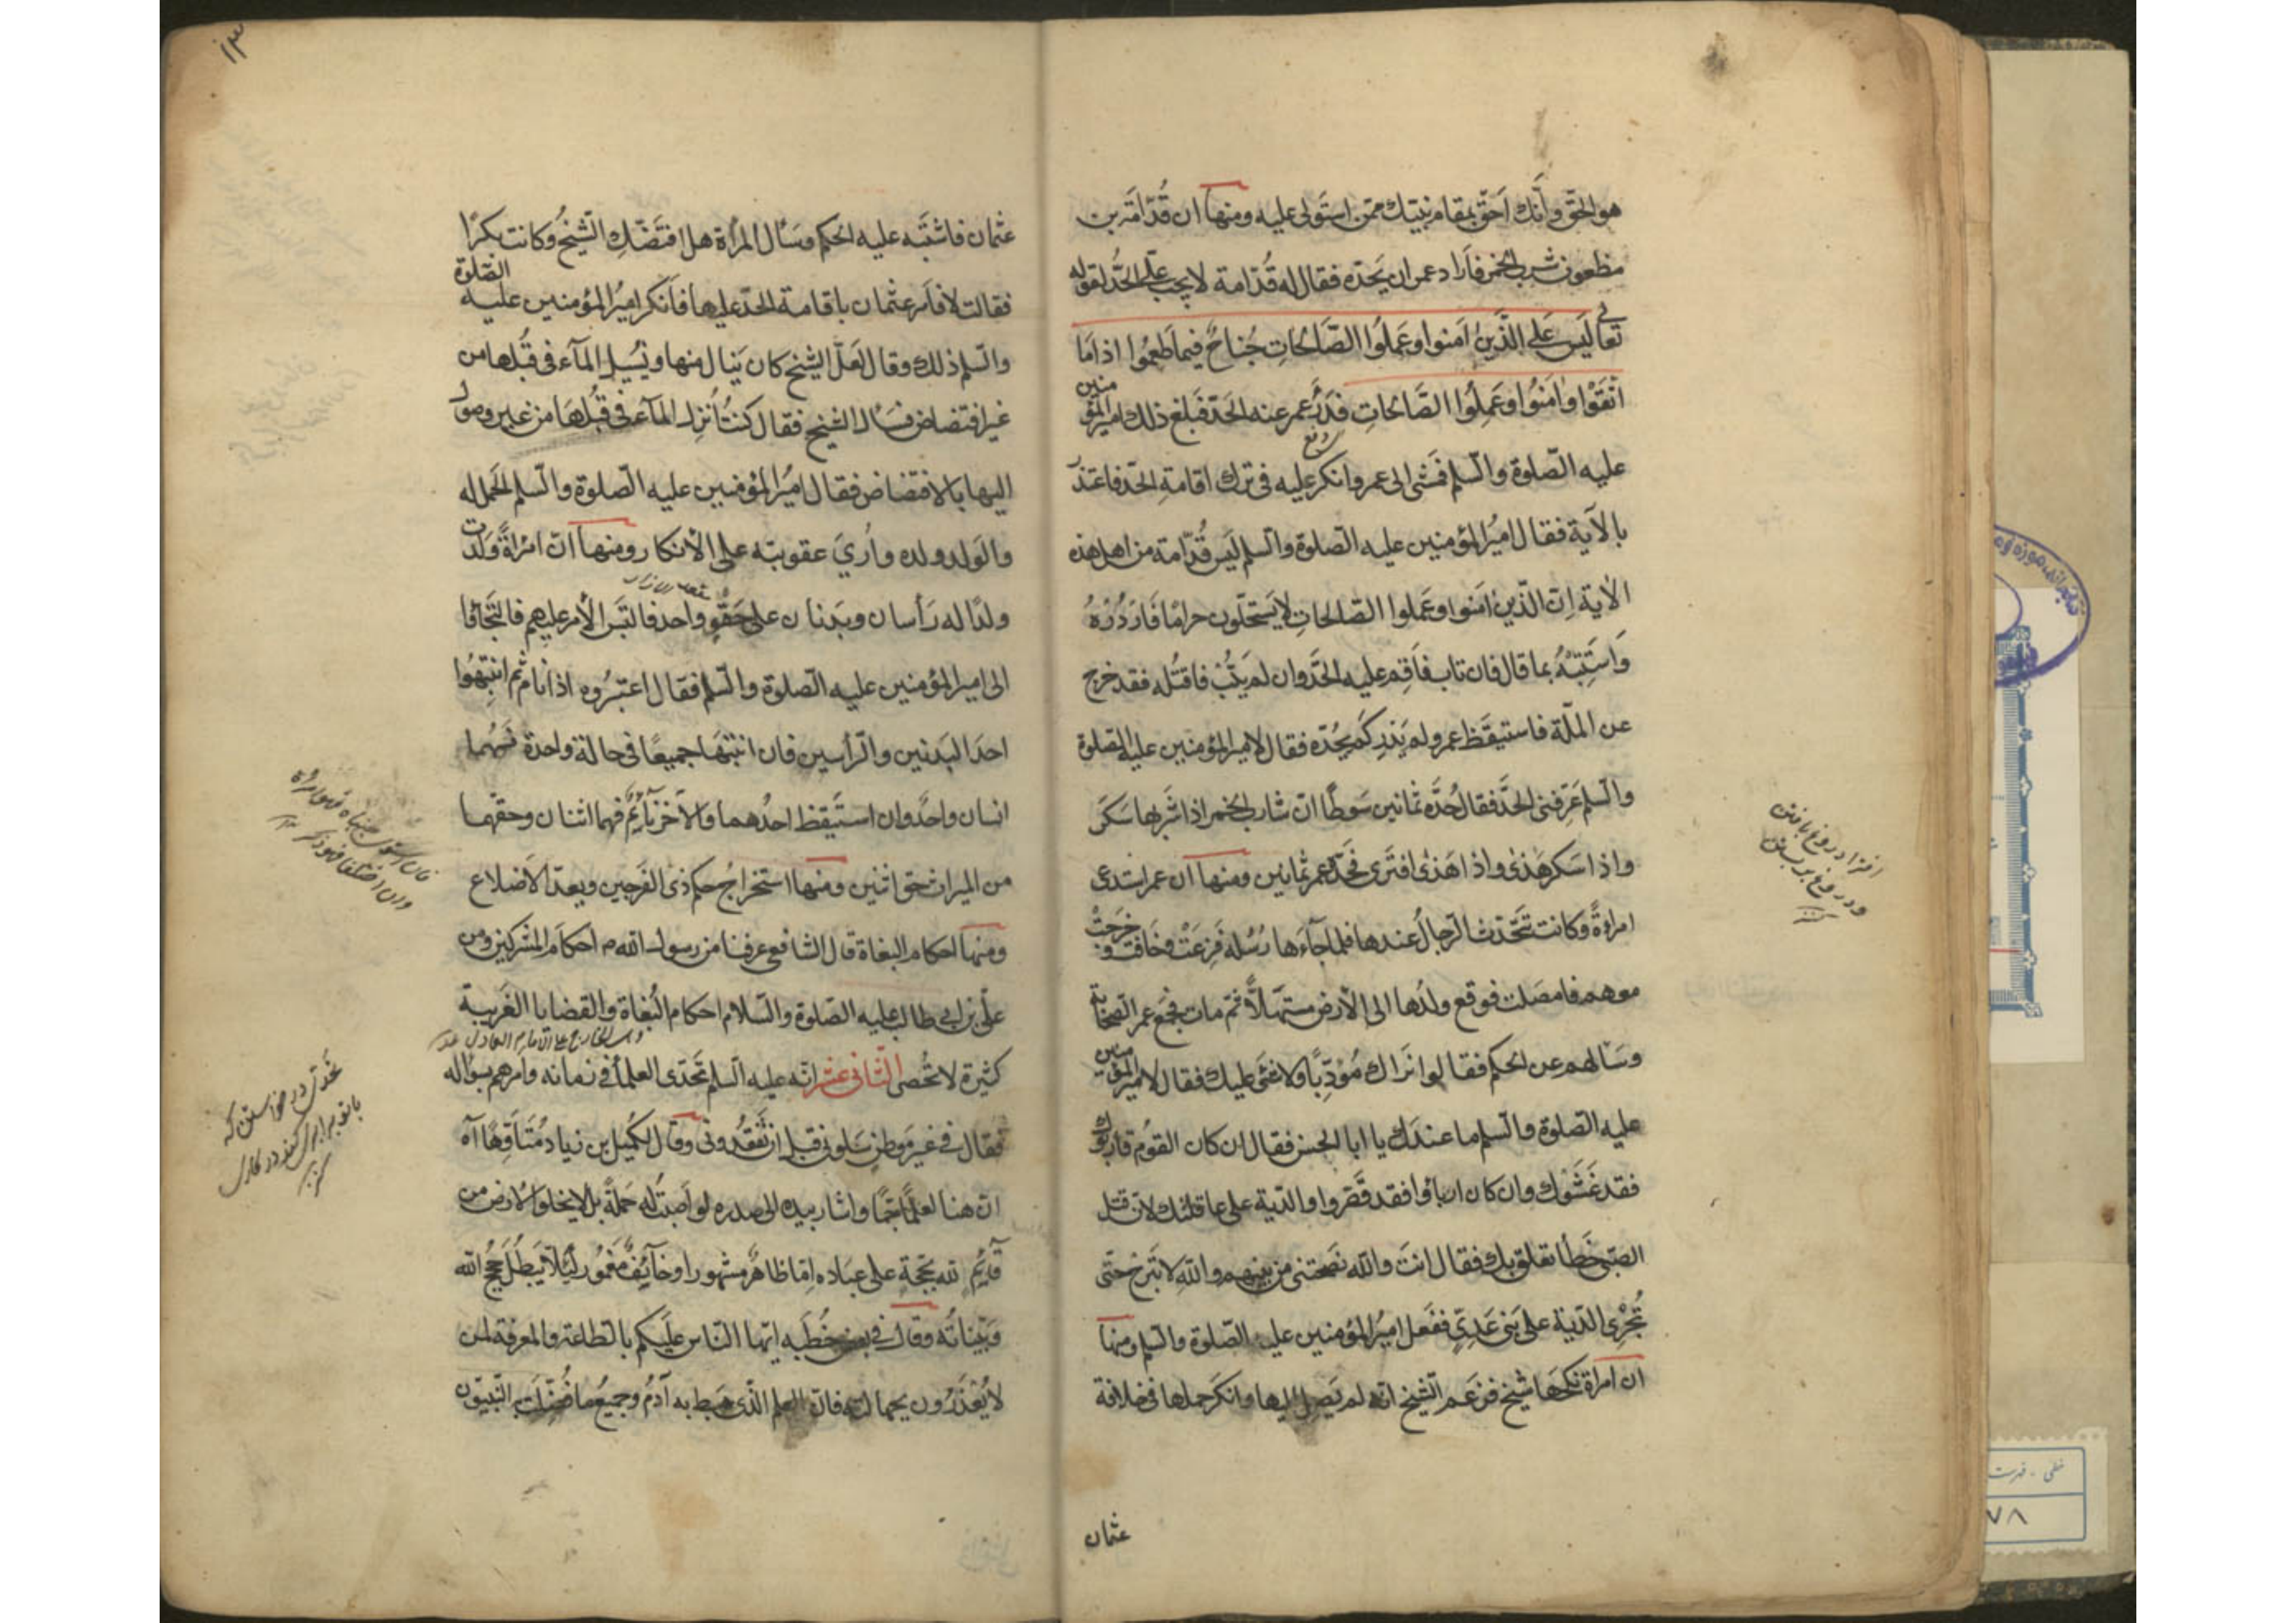 هو الحق وأنك أحق بمقام نبيك ممن استولى عليه ومنها ان قدامة بن
مظعون شرب الخمر فأراد عمر ان يحده فقال له قدامة لا يجب علي الحد لقوله
تعالى ليس على الذين آمنوا وعملوا الصالحات جناح فيما طعموا اذا ما
اتقوا وآمنوا وعملوا الصالحات فدرأ عمر عنه الحد فبلغ ذلك امير المؤمنين
عليه الصلوة والسلم فمشى الى عمر وانكر عليه في ترك اقامة الحد فاعتذر
بالآية فقال امير المؤمنين عليه الصلوة والسلم ليس قدامة من اهل هذه
الآية ان الذين آمنوا وعملوا الصالحات لا يستحلون حراما فاردده
واستتبه بما قال فان تاب فأقم عليه الحد وان لم يتب فاقتله فقد خرج
عن الملة فاستيقظ عمر ولم يدر كم يحده فقال لامير المؤمنين عليه الصلوة
والسلم عرفني الحد فقال حده ثمانين سوطا ان شارب الخمر اذا شربها سكر
واذا سكر هذى واذا هذى افترى فحده عمر ثمانين ومنها ان عمر استدعى
امرأة وكانت تتحدث الرجال عندها فلما جآءها رسله فزعت وخافت وخرجت
معهم فامصلت فوقع ولدها الى الأرض مستهلا ثم مات فجمع عمر الصحابة
وسألهم عن الحكم فقالوا نراك مؤدبا ولا شئ عليك فقال لامير المؤمنين
عليه الصلوة والسلم ما عندك يا ابا الحسن فقال ان كان القوم قاربوك
فقد غشوك وان كان ارتأوا فقد قصروا والدية على عاقلتك لان قتل
الصبي خطأ تعلق بك فقال انت والله نصحتني من بينهم والله لا تبرح حتى
تجري الدية على بني عدي ففعل امير المؤمنين عليه الصلوة والسلم ومنها
ان امرأة نكحها شيخ فزعم الشيخ انه لم يصل اليها وانكر حملها في خلافة
عثمان
افترا دروغ بافتن
ودروغ بر بستن
كنز
١٣
عثمان فاشتبه عليه الحكم وسأل المرأة هل افتضك الشيخ وكانت بكرا
فقالت لا فأمر عثمان باقامة الحد عليها فأنكر امير المؤمنين عليه الصلوة
والسلم ذلك وقال لعل الشيخ كان ينال منها ويسيل المآء في قبلها من
غير افتضاض فسأل الشيخ فقال كنت أنزل المآء في قبلها من غير وصول
اليها بالافتضاض فقال امير المؤمنين عليه الصلوة والسلم الحمل له
والولد ولده وأرى عقوبته على الانكار ومنها ان امرأة ولدت
ولدا له رأسان وبدنان على حقو واحد فالتبس الأمر عليهم فالتجاؤا
الى امير المؤمنين عليه الصلوة والسلم فقال اعتبروه اذا نام ثم انتبهوا
احد البدنين والرأسين فان انتبها جميعا في حالة واحدة فهما
انسان واحد وان استيقظ احدهما والآخر نآئم فهما اثنان وحقهما
من الميراث حق اثنين ومنها استخراج حكم ذي الفرجين وبعد الاضلاع
ومنها احكام البغاة قال الشافعي عرفنا من رسول الله م احكام المشركين ومن
علي بن ابي طالب عليه الصلوة والسلام احكام البغاة والقضايا الغريبة
كثيرة لا تحصى الثاني عشر انه عليه السلم تحدى العلمآء في زمانه وأمرهم بسؤاله
فقال في غير موطن سلوني قبل ان تفقدوني وقال لكميل بن زياد متأوها آه
ان هنا لعلما جما واشار بيده الى صدره لو أصبت له حملة بلى لا يخلو الارض من
قآئم لله بحجة على عباده اما ظاهر مشهورا وخآئف مغمور لئلا يبطل حجج الله
وبيناته وقال في بعض خطبه ايها الناس عليكم بالطاعة والمعرفة لمن
لا يعذرون بجهالته فان العلم الذي هبط به آدم وجميع ما فضلت به النبيون
تحدى در خواستن كه
با تو برابرى كند در كارى
كنز
خطى - فهرست
٧٨